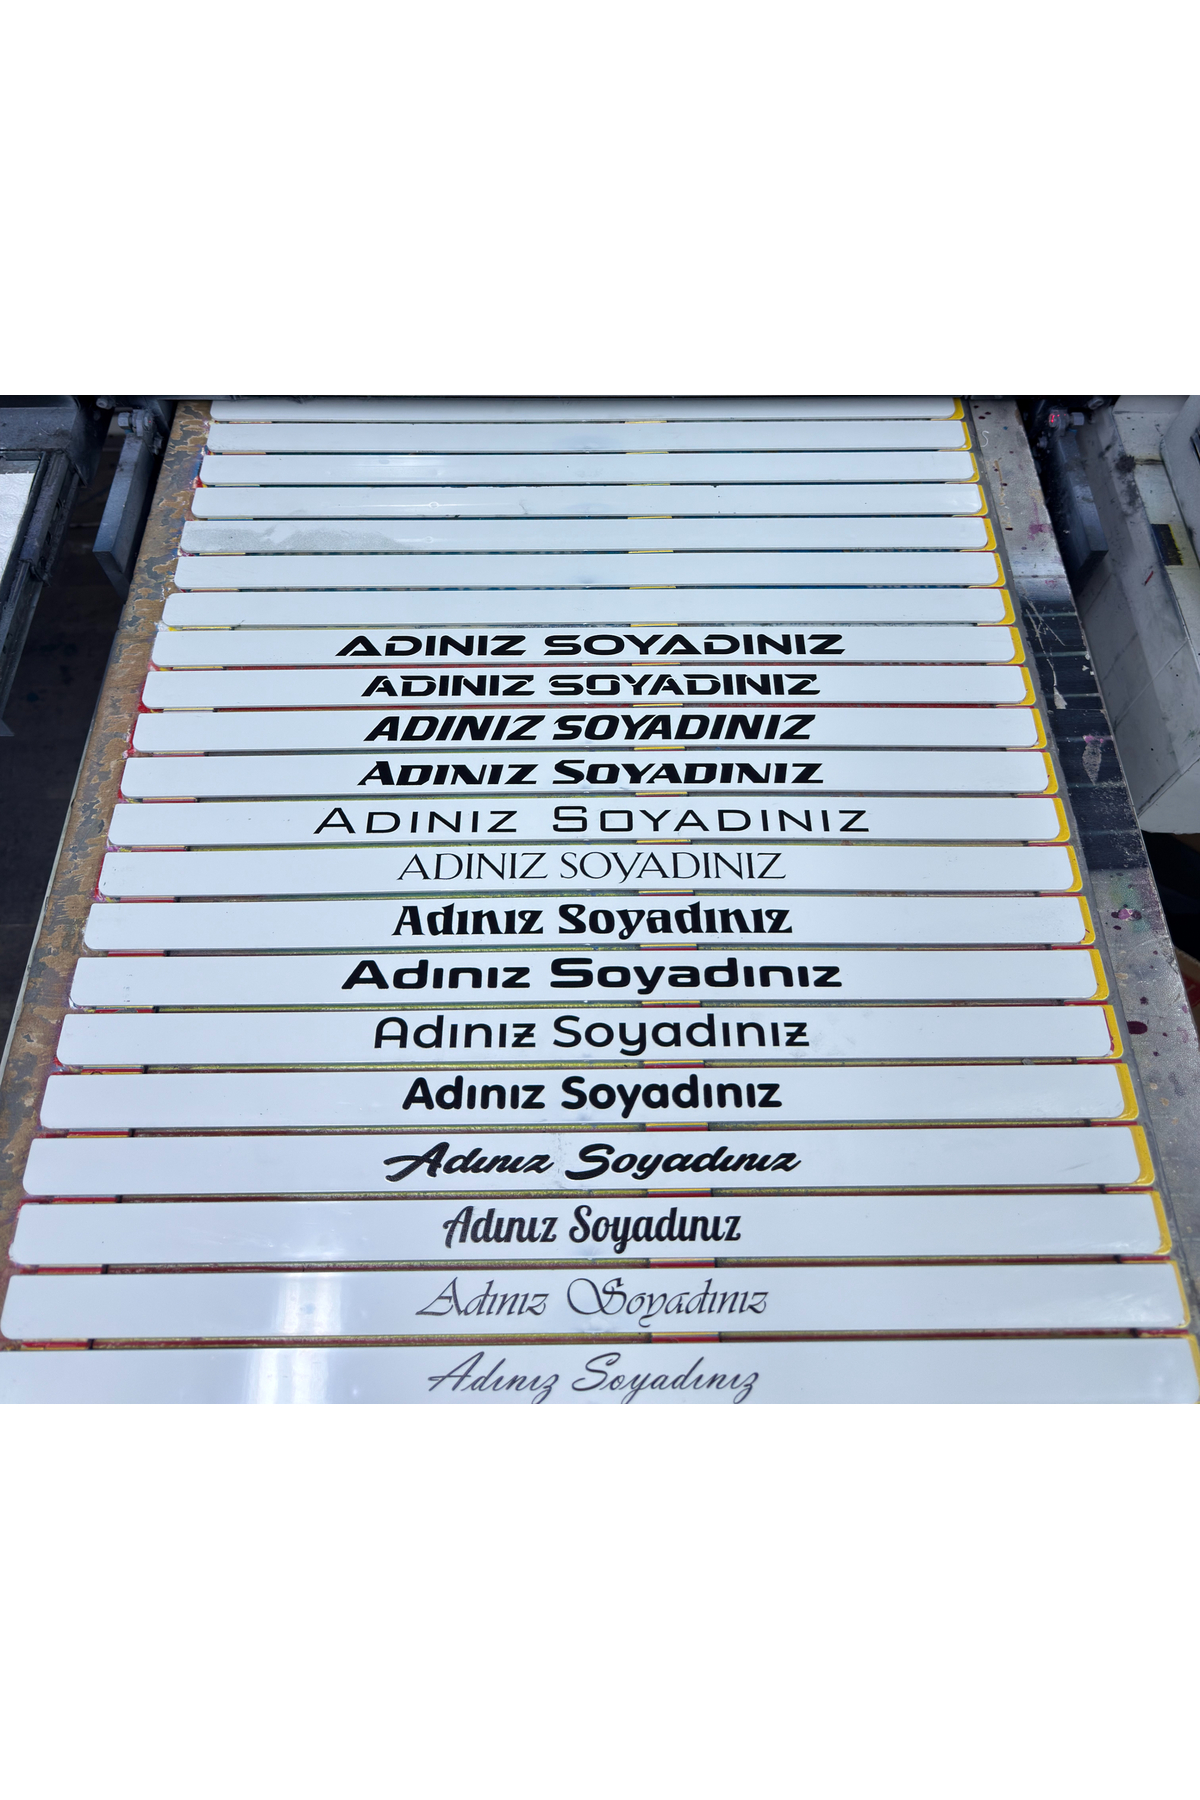 ADINIZ SOYADINIZ
ADINIZ SOYADINIZ
ADINIZ SOYADINIZ
ADINIZ SOYADINIZ
ADINIZ SOYADINIZ
ADINIZ SOYADINIZ
Adınız Soyadınız
Adınız Soyadınız
Adınız Soyadınız
Adınız Soyadınız
Adınız Soyadınız
Adınız Soyadınız
Adınız Soyadınız
Adınız Soyadınız